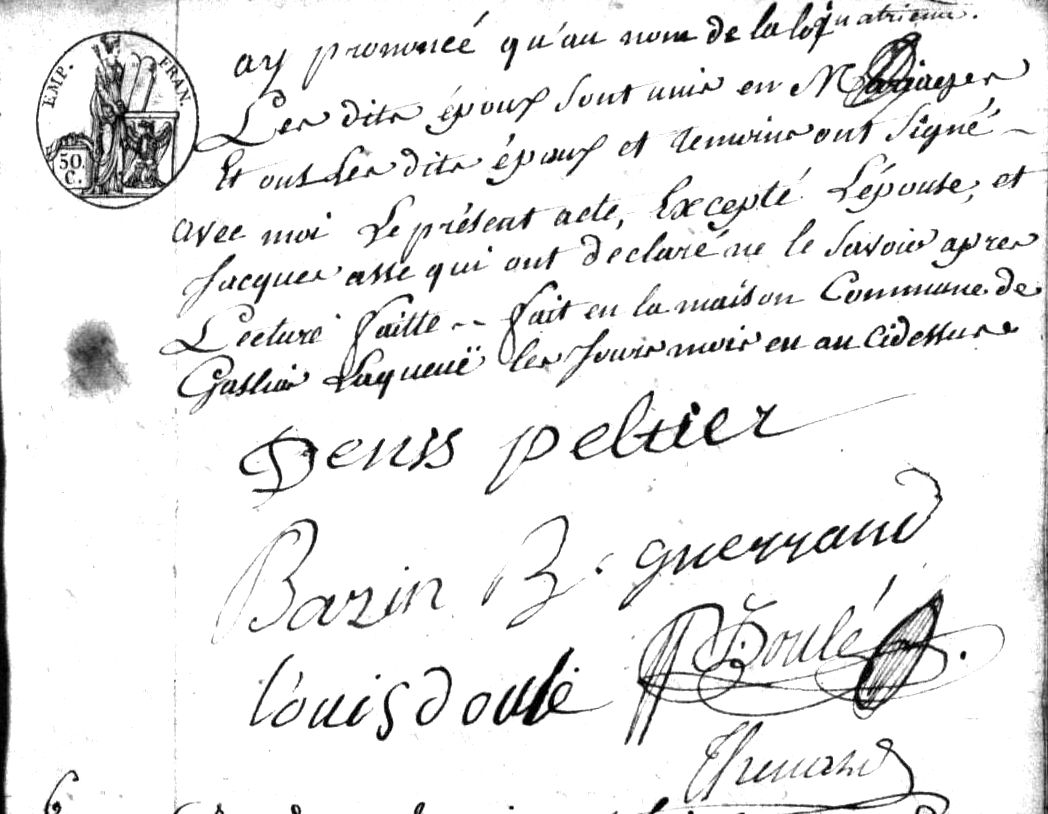 EMP. FRAN.
50 C.
quatrieme.
ay prononcé qu'au nom de la loi
Les dits époux sont unis en Mariages
Et ont Les dits époux et temoins ont Signé
avec moi Le présent acte, Excepté L'épouse, et
Jacques asse qui ont declaré ne le savoir apres
Lecture faitte -- fait en la maison Commune de
Laqueuë les jours mois en an cidessus
Denis peltier
Bazin B. guerrand
Doulé
Louis doulé